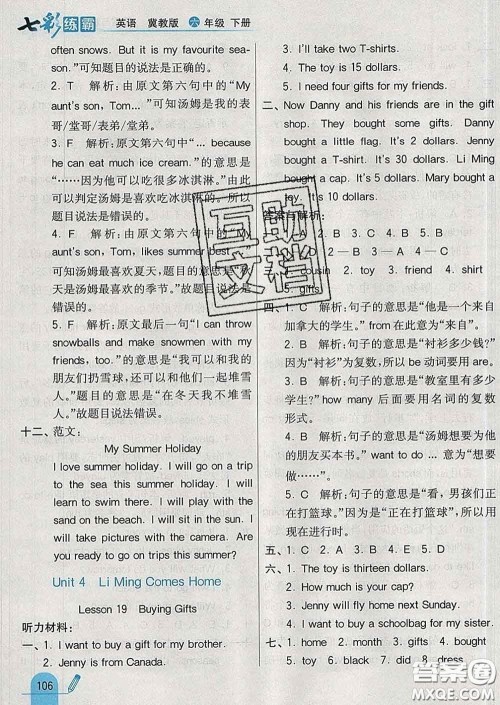 七彩练霸 英语 冀教版 六年级 下册
often snows. But it is my favourite sea-
son.”可知题目的说法是正确的。
2. T 解析:由原文第六句中的“My
aunt's son, Tom...”可知汤姆是我的表
哥/堂哥/表弟/堂弟。
3. F 解析:原文第六句中“... because
he can eat much ice cream.”的意思是
“……因为他可以吃很多冰淇淋。”由此
可以判定汤姆是喜欢吃冰淇淋的。所以
题目说法是错误的。
4. F 解析:由原文第六句中的“My
aunt's son, Tom likes summer best
”可知汤姆最喜欢夏天,题目的意思是“
汤姆最喜欢的季节。”故题目说法是
错误的。
5. F 解析:原文最后一句“I can throw
snowballs and make snowmen with my
friends, too.”的意思是“我可以和我的
朋友们扔雪球,还可以和他们一起堆雪
人。”题目的意思是“在冬天我不喜欢堆
雪人。”故题目说法错误。
十二、范文:
My Summer Holiday
I love summer holiday. I will go on a trip
to the sea this summer. I will play with the
sand on the beach. I will sit in the sun. I
will take pictures with the camera. Are
you ready to go on trips this summer?
Unit 4 Li Ming Comes Home
Lesson 19 Buying Gifts
听力材料:
一、1. I want to buy a gift for my brother.
2. Jenny is from Canada.
106
3. I will take two T-shirts.
4. The toy is 15 dollars.
5. I need four gifts for my friends.
二、Now Danny and his friends are in the gift
shop. They bought some gifts. Danny
bought a little flag. It's 2 dollars. Jenny
bought a T-shirt. It's 30 dollars. Li Ming
bought a cap. It's 5 dollars. Mary bought a
toy. It's 10 dollars.
答案与解析:
B 3. A 4. B 5. C
D 2—A 3—B 4—C
cousin 2. toy 3. friend 4. shirt
5. gifts
四、1. C 解析:句子的意思是“他是一个来自
加拿大的学生。”from在此意为“来自”。
2. C 解析:句子的意思是“衬衫多少钱?”
因为“衬衫”为复数,所以be动词要用are。
3. B 解析:句子的意思是“教室里有多少
学生?”how many后面要用名词的复数
形式。
4. B 解析:句子的意思是“汤姆想要为他
的朋友买本书。”want to do ... 意为“想要
做……”。
5. C 解析:句子的意思是“看,男孩们正
在打篮球。”因为是“正在打篮球”,所以
是现在进行时。
五、1. C 2. A 3. B 4. E 5. D
六、1. The toy is thirteen dollars.
2. How much is your cap?
3. Jenny will fly home next Sunday.
4. I want to buy a schoolbag for my sister.
七、1. home 2. month 3. gifts 4. bought
5. toy 6. black 7. did 8. dress
互助文档
答案圈
MXQE.COM